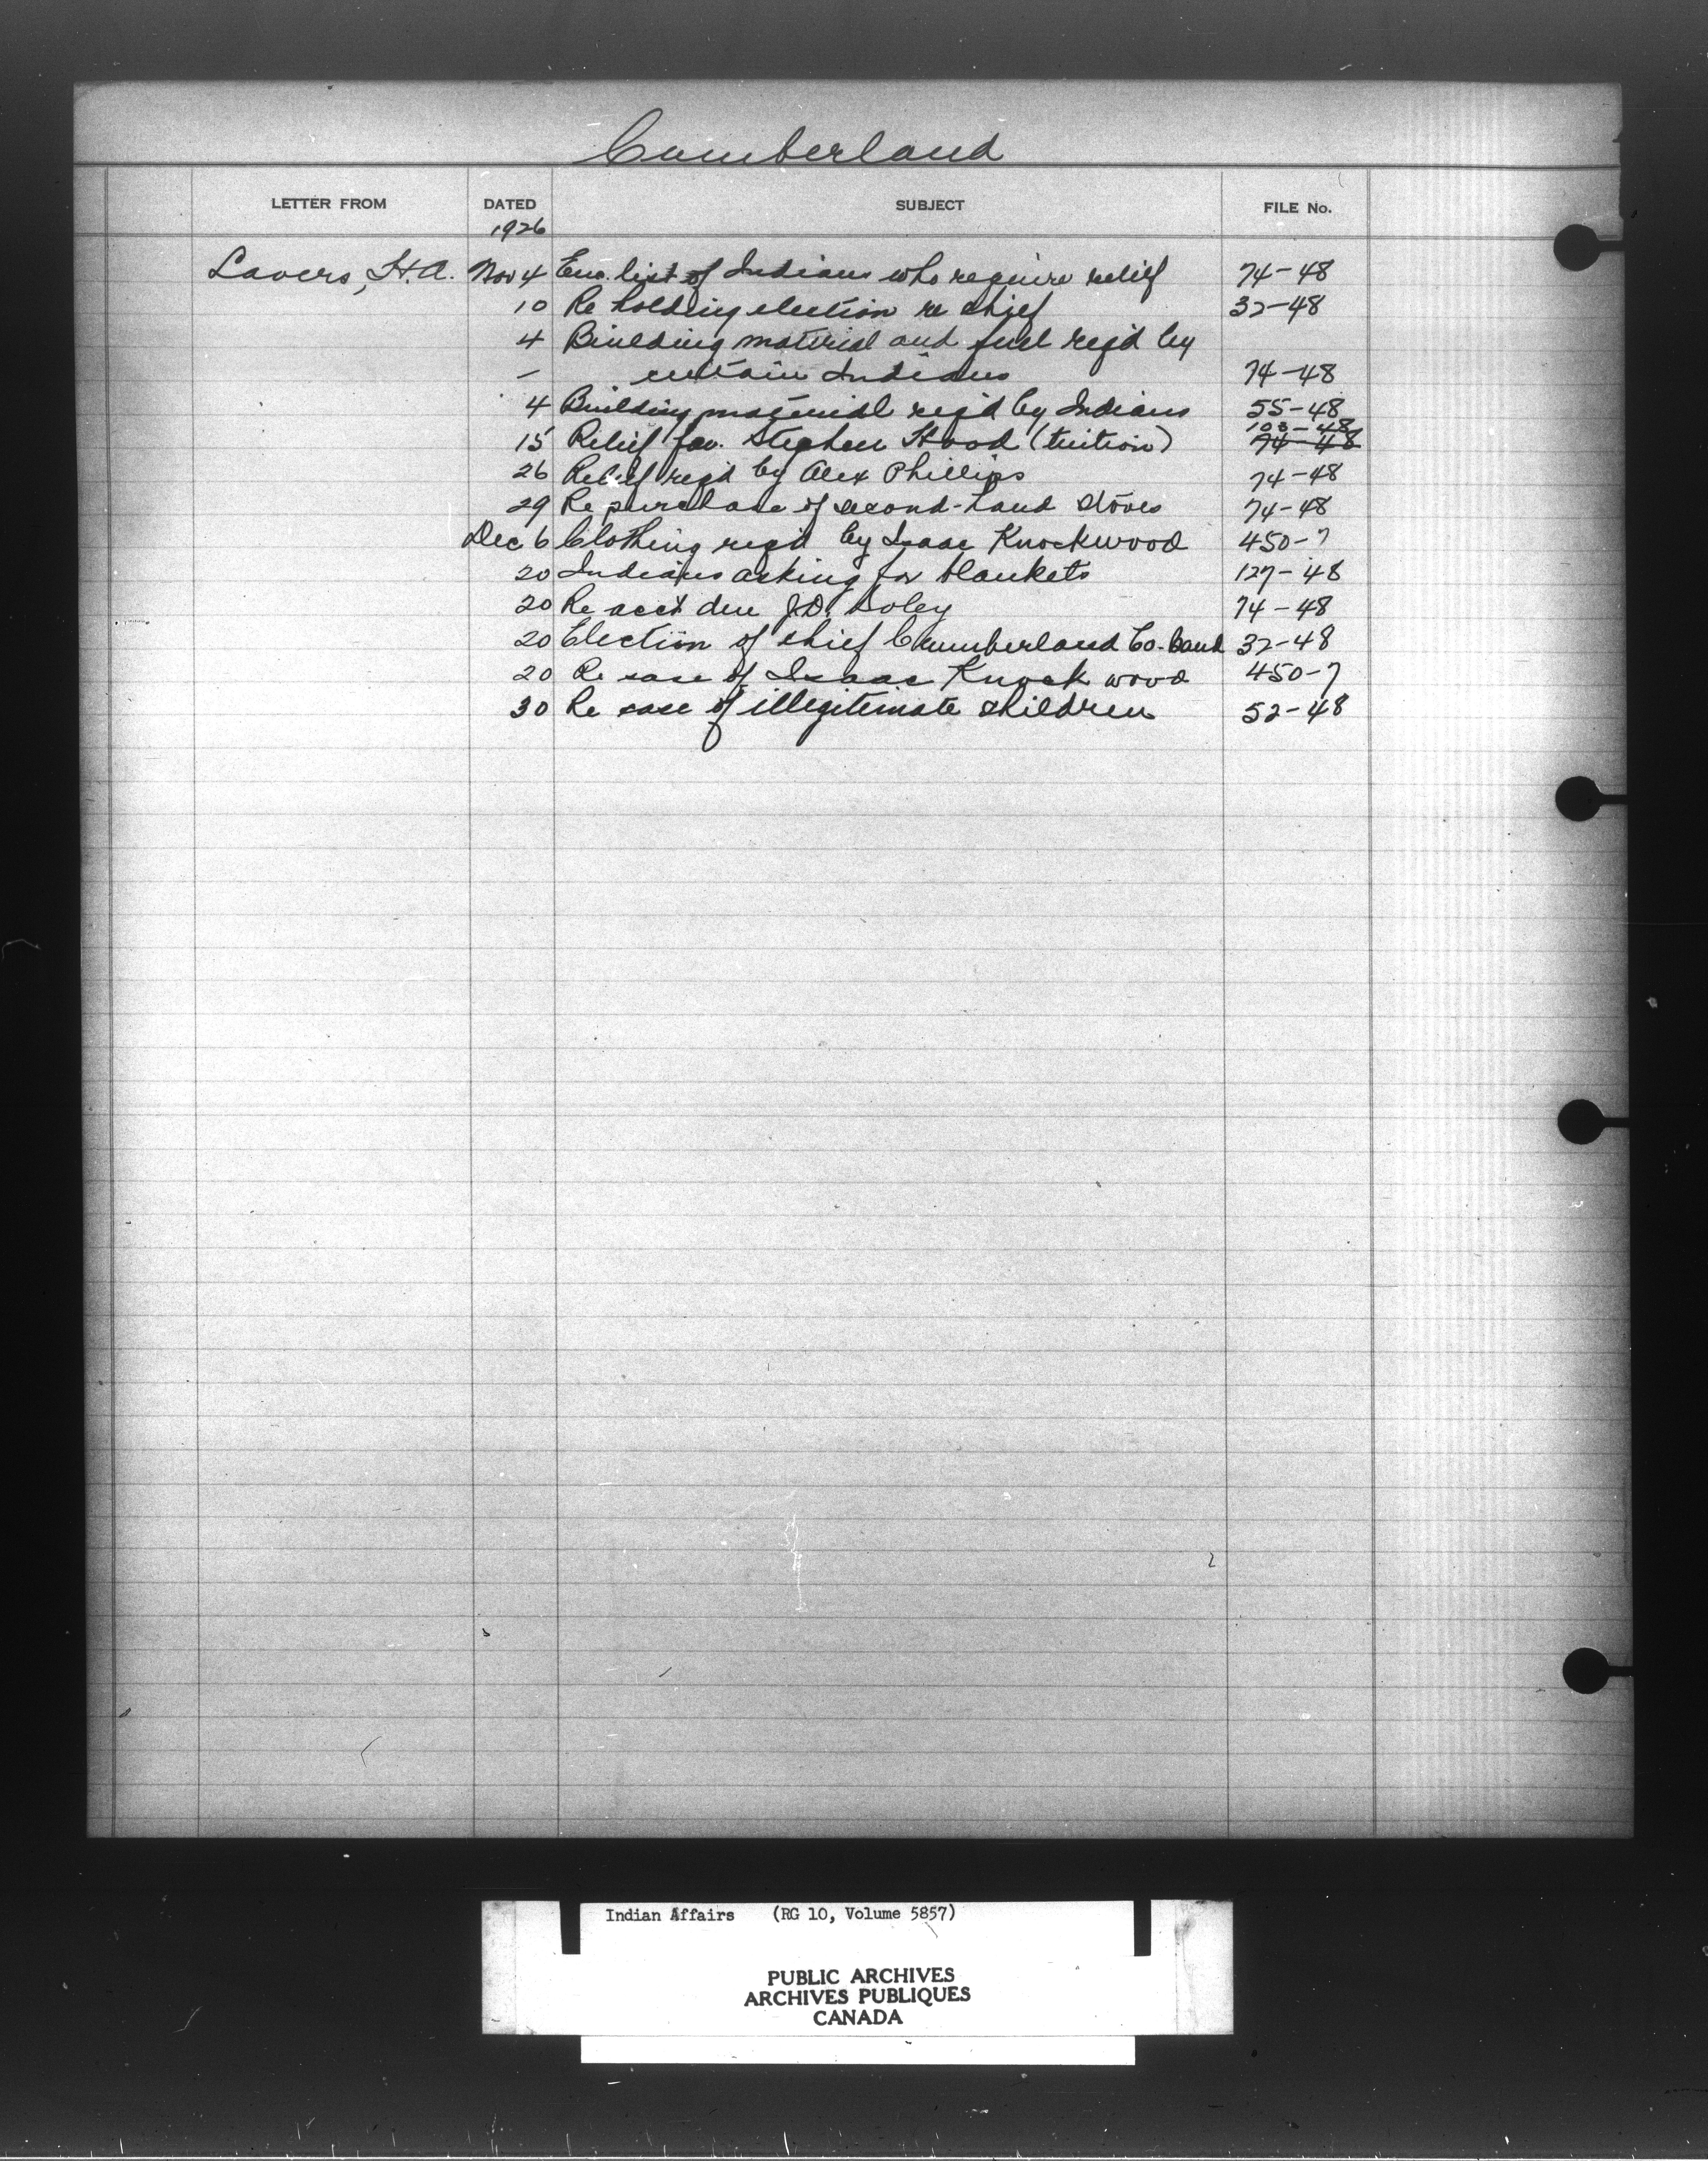 Cumberland
LETTER FROM DATED SUBJECT FILE No.
1926
Lavers, H.A. Nov 4 Enc. list of Indians who require relief 74-48
10 Re holding election re chief 32-48
4 Building material and fuel req'd by
— certain Indians 74-48
4 Building material req'd by Indians 55-48
103-48
15 Relief fav. Stephen Hood (tuition) 74-48
26 Relief req'd by Alex Phillips 74-48
29 Re purchase of second-hand stoves 74-48
Dec 6 Clothing req'd by Isaac Knockwood 450-7
20 Indians asking for blankets 127-48
20 Re acct due J.D. 74-48
20 Election of chief Cumberland Co. Band 32-48
20 Re case of Isaac Knockwood 450-7
30 Re case of illegitimate children 52-48
Indian Affairs (RG 10, Volume 5857)
PUBLIC ARCHIVES
ARCHIVES PUBLIQUES
CANADA